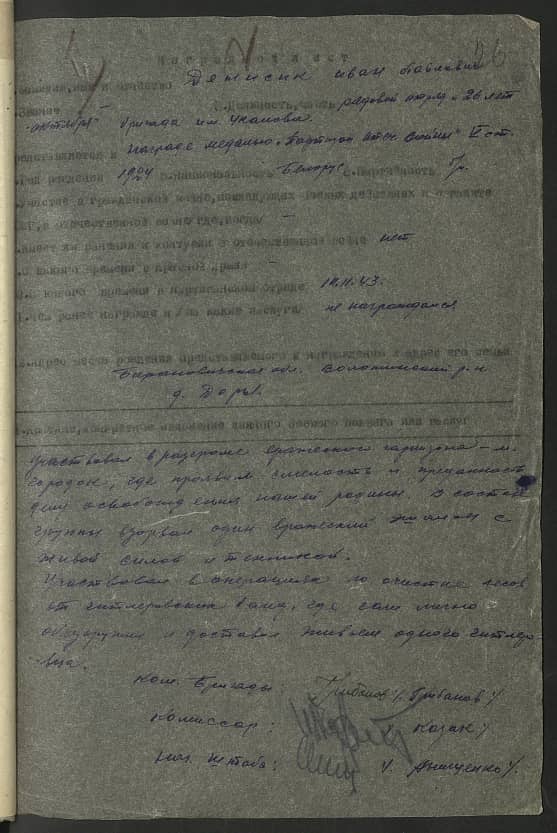 Наградной лист
Денисик Иван Павлович
Должность, часть рядовой отряд "26 лет
октября" бригада им. Чкалова.
Представляется к награде медалью "Партизан Отеч. войны" II ст.
1924 Национальность Белорус Партийность
Участие в гражданской войне, последующих боевых действиях
отечественной войне где, когда -
Имеет ли ранения и контузии в отечественной войне нет
С какого времени в красной армии -
С какого времени в партизанском отряде 19.11.43.
Чем ранее награжден /за какие заслуги/ не награждался
адрес представляемого к награждению и адрес его семьи
Барановичская обл. Воложинский р-н
д. Доры.
изложение личного боевого подвига или заслуг
Участвовал в разгроме вражеского гарнизона - м.
городок, где проявил смелость и преданность
для освобождения нашей родины. В составе
группы взорвал один вражеский эшелон с
живой силой и техникой.
Участвовал в операциях по очистке лесов
от гитлеровских банд, где сам лично
обезоружил и доставил живьем одного гитлеро-
вца.
Ком. Бригады: /Грибанов/
Комиссар: /Казак/
Нач. Штаба: /Онищенко/